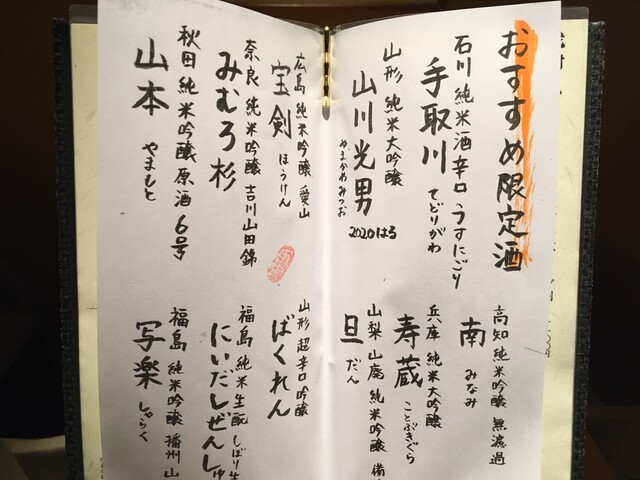 おすすめ限定酒
石川 純米酒辛口 うすにごり
手取川 てどりがわ
山形 純米大吟醸
山川光男 やまかわみつお 2020はる
広島 純米吟醸 愛山
宝剣 ほうけん
奈良 純米吟醸 吉川山田錦
みむろ杉
秋田 純米吟醸原酒 6号
山本 やまもと
高知 純米吟醸 無濾過
南 みなみ
兵庫 純米大吟醸
寿蔵 ことぶきぐら
山梨 山廃 純米吟醸 備
旦 だん
山形 超辛口吟醸
ばくれん
福島 純米生酛 しぼり生
にいだしぜんしゅ
福島 純米吟醸 播州 山
写楽 しゃらく